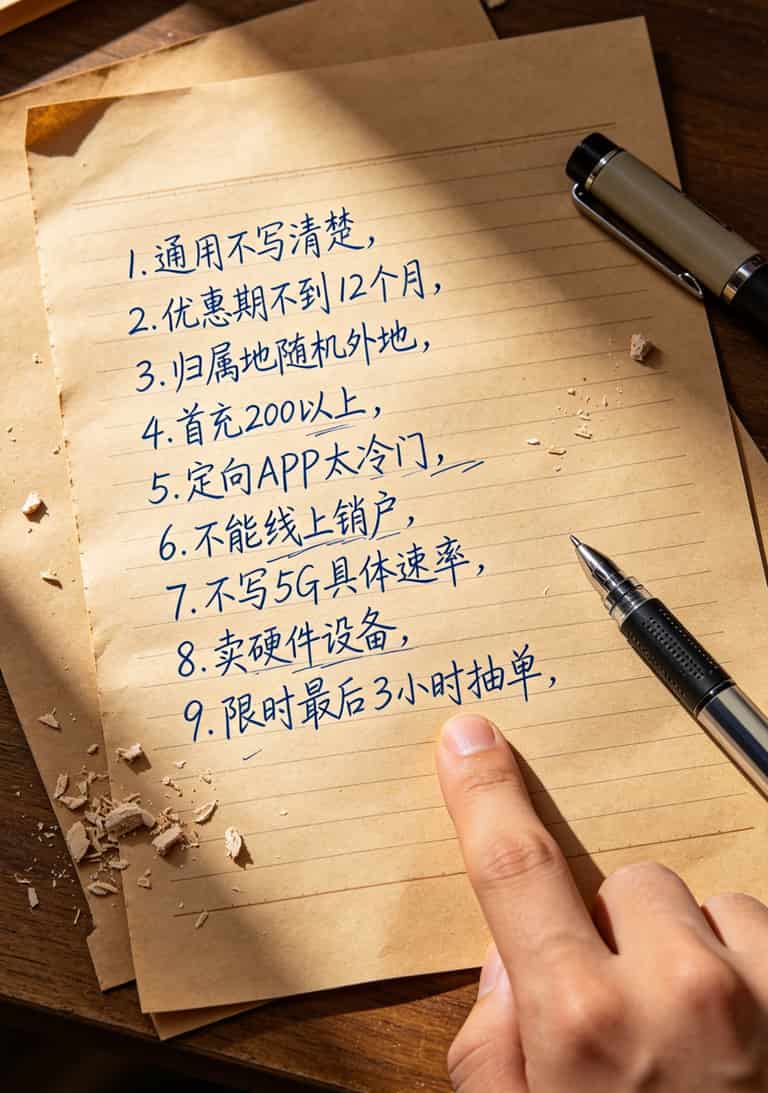 1.通用不写清楚,
2.优惠期不到12个月,
3.归属地随机外地,
4.首充200以上,
5.定向APP太冷门,
6.不能线上销户,
7.不写5G具体速率,
8.卖硬件设备,
9.限时最后3小时抽单,